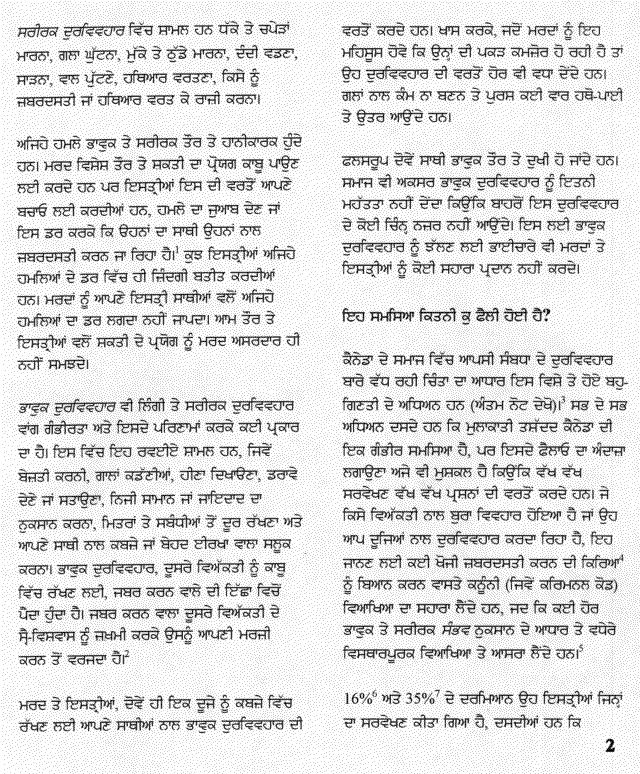 ਸਰੀਰਕ ਦੁਰਵਿਵਹਾਰ ਵਿੱਚ ਸ਼ਾਮਲ ਹਨ ਧੱਕੇ ਤੇ ਚਪੇੜਾਂ
ਮਾਰਨਾ, ਗਲਾ ਘੁੱਟਨਾ, ਮੁੱਕੇ ਤੇ ਠੁੱਡੇ ਮਾਰਨਾ, ਦੰਦੀ ਵਡਣਾ,
ਸਾੜਨਾ, ਵਾਲ ਪੁੱਟਣੇ, ਹਥਿਆਰ ਵਰਤਣਾ, ਕਿਸੇ ਨੂੰ
ਜ਼ਬਰਦਸਤੀ ਜਾਂ ਹਥਿਆਰ ਵਰਤ ਕੇ ਰਾਜ਼ੀ ਕਰਨਾ।
ਅਜਿਹੇ ਹਮਲੇ ਭਾਵੁਕ ਤੇ ਸਰੀਰਕ ਤੌਰ ਤੇ ਹਾਨੀਕਾਰਕ ਹੁੰਦੇ
ਹਨ। ਮਰਦ ਵਿਸ਼ੇਸ਼ ਤੌਰ ਤੇ ਸ਼ਕਤੀ ਦਾ ਪ੍ਰੋਯਗ ਕਾਬੂ ਪਾਉਣ
ਲਈ ਕਰਦੇ ਹਨ ਪਰ ਇਸਤ੍ਰੀਆਂ ਇਸ ਦੀ ਵਰਤੋਂ ਆਪਣੇ
ਬਚਾਓ ਲਈ ਕਰਦੀਆਂ ਹਨ, ਹਮਲੇ ਦਾ ਜੁਆਬ ਦੇਣ ਜਾਂ
ਇਸ ਡਰ ਕਰਕੇ ਕਿ ਓਹਨਾਂ ਦਾ ਸਾਥੀ ਉਹਨਾਂ ਨਾਲ
ਜ਼ਬਰਦਸਤੀ ਕਰਨ ਜਾ ਰਿਹਾ ਹੈ।¹ ਕੁਝ ਇਸਤ੍ਰੀਆਂ ਅਜਿਹੇ
ਹਮਲਿਆਂ ਦੇ ਡਰ ਵਿੱਚ ਹੀ ਜ਼ਿੰਦਗੀ ਬਤੀਤ ਕਰਦੀਆਂ
ਹਨ। ਮਰਦਾਂ ਨੂੰ ਆਪਣੇ ਇਸਤ੍ਰੀ ਸਾਥੀਆਂ ਵਲੋਂ ਅਜਿਹੇ
ਹਮਲਿਆਂ ਦਾ ਡਰ ਲਗਦਾ ਨਹੀਂ ਜਾਪਦਾ। ਆਮ ਤੌਰ ਤੇ
ਇਸਤ੍ਰੀਆਂ ਵਲੋਂ ਸ਼ਕਤੀ ਦੇ ਪ੍ਰਯੋਗ ਨੂੰ ਮਰਦ ਅਸਰਦਾਰ ਹੀ
ਨਹੀਂ ਸਮਝਦੇ।
ਭਾਵੁਕ ਦੁਰਵਿਵਹਾਰ ਵੀ ਲਿੰਗੀ ਤੇ ਸਰੀਰਕ ਦੁਰਵਿਵਹਾਰ
ਵਾਂਗ ਗੰਭੀਰਤਾ ਅਤੇ ਇਸਦੇ ਪਰਿਣਾਮਾਂ ਕਰਕੇ ਕਈ ਪ੍ਰਕਾਰ
ਦਾ ਹੈ। ਇਸ ਵਿੱਚ ਇਹ ਰਵਈਏ ਸ਼ਾਮਲ ਹਨ, ਜਿਵੇਂ
ਬੇਜ਼ਤੀ ਕਰਨੀ, ਗਾਲਾਂ ਕਡਣੀਆਂ, ਹੀਣਾ ਦਿਖਾਓਣਾ, ਡਰਾਵੇ
ਦੇਣੇ ਜਾਂ ਸਤਾਉਣਾ, ਨਿਜੀ ਸਾਮਾਨ ਜਾਂ ਜਾਇਦਾਦ ਦਾ
ਨੁਕਸਾਨ ਕਰਨਾ, ਮਿਤਰਾਂ ਤੇ ਸਬੰਧੀਆਂ ਤੋਂ ਦੂਰ ਰੱਖਣਾ ਅਤੇ
ਆਪਣੇ ਸਾਥੀ ਨਾਲ ਕਬਜ਼ੇ ਜਾਂ ਬੇਹਦ ਈਰਖਾ ਵਾਲਾ ਸਲੂਕ
ਕਰਨਾ। ਭਾਵੁਕ ਦੁਰਵਿਵਹਾਰ, ਦੂਸਰੇ ਵਿਅੱਕਤੀ ਨੂੰ ਕਾਬੂ
ਵਿੱਚ ਰੱਖਣ ਲਈ, ਜਬਰ ਕਰਨ ਵਾਲੇ ਦੀ ਇੱਛਾ ਵਿਚੋਂ
ਪੈਦਾ ਹੁੰਦਾ ਹੈ। ਜਬਰ ਕਰਨ ਵਾਲਾ ਦੂਸਰੇ ਵਿਅੱਕਤੀ ਦੇ
ਸ੍ਵੈ-ਵਿਸ਼ਵਾਸ ਨੂੰ ਜ਼ਖ਼ਮੀ ਕਰਕੇ ਉਸਨੂੰ ਆਪਣੀ ਮਰਜ਼ੀ
ਕਰਨ ਤੋਂ ਵਰਜਦਾ ਹੈ।²
ਮਰਦ ਤੇ ਇਸਤ੍ਰੀਆਂ, ਦੋਵੇਂ ਹੀ ਇਕ ਦੂਜੇ ਨੂੰ ਕਬਜ਼ੇ ਵਿੱਚ
ਰੱਖਣ ਲਈ ਆਪਣੇ ਸਾਥੀਆਂ ਨਾਲ ਭਾਵੁਕ ਦੁਰਵਿਵਹਾਰ ਦੀ
ਵਰਤੋਂ ਕਰਦੇ ਹਨ। ਖਾਸ ਕਰਕੇ, ਜਦੋਂ ਮਰਦਾਂ ਨੂੰ ਇਹ
ਮਹਿਸੂਸ ਹੋਵੇ ਕਿ ਉਨ੍ਹਾਂ ਦੀ ਪਕੜ ਕਮਜ਼ੋਰ ਹੋ ਰਹੀ ਹੈ ਤਾਂ
ਉਹ ਦੁਰਵਿਵਹਾਰ ਦੀ ਵਰਤੋਂ ਹੋਰ ਵੀ ਵਧਾ ਦੇਂਦੇ ਹਨ।
ਗਲਾਂ ਨਾਲ ਕੰਮ ਨਾ ਬਣਨ ਤੇ ਪੁਰਸ਼ ਕਈ ਵਾਰ ਹਥੋ-ਪਾਈ
ਤੇ ਉਤਰ ਆਉਂਦੇ ਹਨ।
ਫਲਸਰੂਪ ਦੋਵੇਂ ਸਾਥੀ ਭਾਵੁਕ ਤੌਰ ਤੇ ਦੁਖੀ ਹੋ ਜਾਂਦੇ ਹਨ।
ਸਮਾਜ ਵੀ ਅਕਸਰ ਭਾਵੁਕ ਦੁਰਵਿਵਹਾਰ ਨੂੰ ਇਤਨੀ
ਮਹੱਤਤਾ ਨਹੀਂ ਦੇਂਦਾ ਕਿਉਂਕਿ ਬਾਹਰੋਂ ਇਸ ਦੁਰਵਿਵਹਾਰ
ਦੇ ਕੋਈ ਚਿੰਨ੍ਹ ਨਜ਼ਰ ਨਹੀਂ ਆਉਂਦੇ। ਇਸ ਲਈ ਭਾਵੁਕ
ਦੁਰਵਿਵਹਾਰ ਨੂੰ ਝੱਲਣ ਲਈ ਭਾਈਚਾਰੇ ਵੀ ਮਰਦਾਂ ਤੇ
ਇਸਤ੍ਰੀਆਂ ਨੂੰ ਕੋਈ ਸਹਾਰਾ ਪ੍ਰਦਾਨ ਨਹੀਂ ਕਰਦੇ।
ਇਹ ਸਮਸਿਆ ਕਿਤਨੀ ਕੁ ਫੈਲੀ ਹੋਈ ਹੈ?
ਕੈਨੇਡਾ ਦੇ ਸਮਾਜ ਵਿੱਚ ਆਪਸੀ ਸੰਬਧਾਂ ਦੇ ਦੁਰਵਿਵਹਾਰ
ਬਾਰੇ ਵੱਧ ਰਹੀ ਚਿੰਤਾ ਦਾ ਆਧਾਰ ਇਸ ਵਿਸ਼ੇ ਤੇ ਹੋਏ ਬਹੁ-
ਗਿਣਤੀ ਦੇ ਅਧਿਅਨ ਹਨ (ਅੰਤਮ ਨੋਟ ਦੇਖੋ)।³ ਸਭ ਦੇ ਸਭ
ਅਧਿਅਨ ਦਸਦੇ ਹਨ ਕਿ ਮੁਲਾਕਾਤੀ ਤਸ਼ੱਦਦ ਕੈਨੇਡਾ ਦੀ
ਇਕ ਗੰਭੀਰ ਸਮਸਿਆ ਹੈ, ਪਰ ਇਸਦੇ ਫੈਲਾਓ ਦਾ ਅੰਦਾਜ਼ਾ
ਲਗਾਉਣਾ ਅਜੇ ਵੀ ਮੁਸ਼ਕਲ ਹੈ ਕਿਉਂਕਿ ਵੱਖ ਵੱਖ
ਸਰਵੇਖਣ ਵੱਖ ਵੱਖ ਪ੍ਰਸ਼ਨਾਂ ਦੀ ਵਰਤੋਂ ਕਰਦੇ ਹਨ। ਜੇ
ਕਿਸੇ ਵਿਅੱਕਤੀ ਨਾਲ ਬੁਰਾ ਵਿਵਹਾਰ ਹੋਇਆ ਹੈ ਜਾਂ ਉਹ
ਆਪ ਦੂਜਿਆਂ ਨਾਲ ਦੁਰਵਿਵਹਾਰ ਕਰਦਾ ਰਿਹਾ ਹੈ, ਇਹ
ਜਾਨਣ ਲਈ ਕਈ ਖੋਜੀ ਜ਼ਬਰਦਸਤੀ ਕਰਨ ਦੀ ਕਿਰਿਆ⁴
ਨੂੰ ਬਿਆਨ ਕਰਨ ਵਾਸਤੇ ਕਨੂੰਨੀ (ਜਿਵੇਂ ਕਰਿਮਨਲ ਕੋਡ)
ਵਿਆਖਿਆ ਦਾ ਸਹਾਰਾ ਲੈਂਦੇ ਹਨ, ਜਦ ਕਿ ਕਈ ਹੋਰ
ਭਾਵੁਕ ਤੇ ਸਰੀਰਕ ਸੰਭਵ ਨੁਕਸਾਨ ਦੇ ਆਧਾਰ ਤੇ ਵਧੇਰੇ
ਵਿਸਥਾਰਪੂਰਕ ਵਿਆਖਿਆ ਤੇ ਆਸਰਾ ਲੈਂਦੇ ਹਨ।⁵
16%⁶ ਅਤੇ 35%⁷ ਦੇ ਦਰਮਿਆਨ ਉਹ ਇਸਤ੍ਰੀਆਂ ਜਿਨ੍ਹਾਂ
ਦਾ ਸਰਵੇਖਣ ਕੀਤਾ ਗਿਆ ਹੈ, ਦਸਦੀਆਂ ਹਨ ਕਿ
2